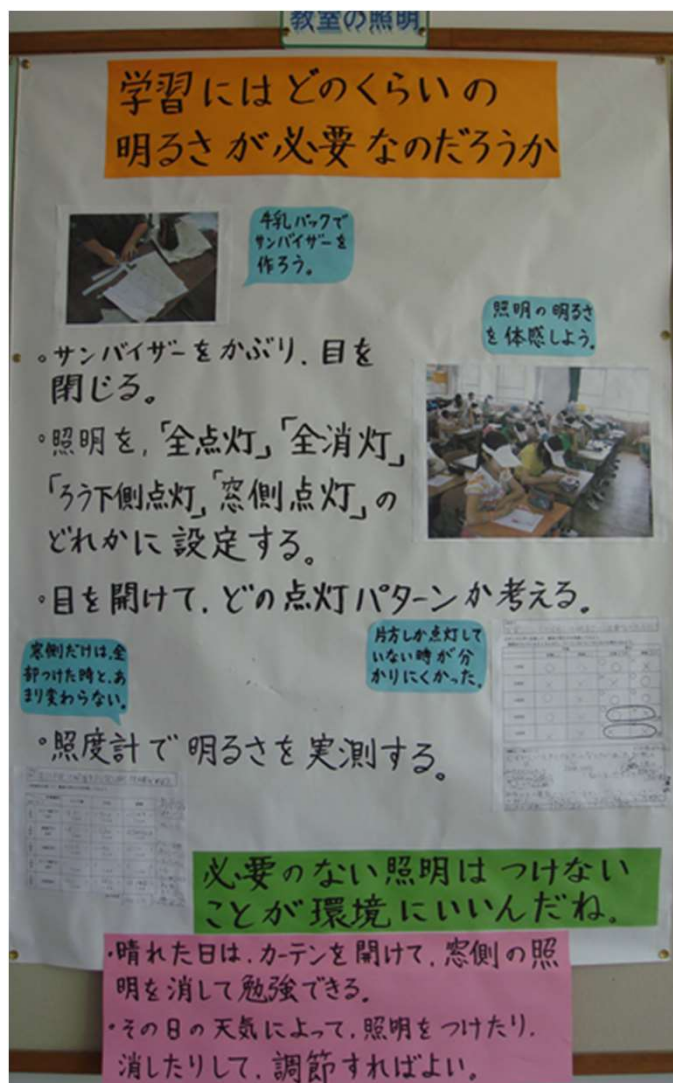 教室の照明
学習にはどのくらいの
明るさが必要なのだろうか
牛乳パックで
サンバイザーを
作ろう。
照明の明るさ
を体感しよう。
。サンバイザーをかぶり、目を
閉じる。
。照明を、「全点灯」「全消灯」
「ろう下側点灯」「窓側点灯」の
どれかに設定する。
。目を開けて、どの点灯パターンか考える。
窓側だけは、全
部つけた時と、あ
まり変わらない。
片方しか点灯して
いない時が分
かりにくかった。
。照度計で明るさを実測する。
必要のない照明はつけない
ことが環境にいいんだね。
・晴れた日は、カーテンを開けて、窓側の照
明を消して勉強できる。
・その日の天気によって、照明をつけたり、
消したりして、調節すればよい。